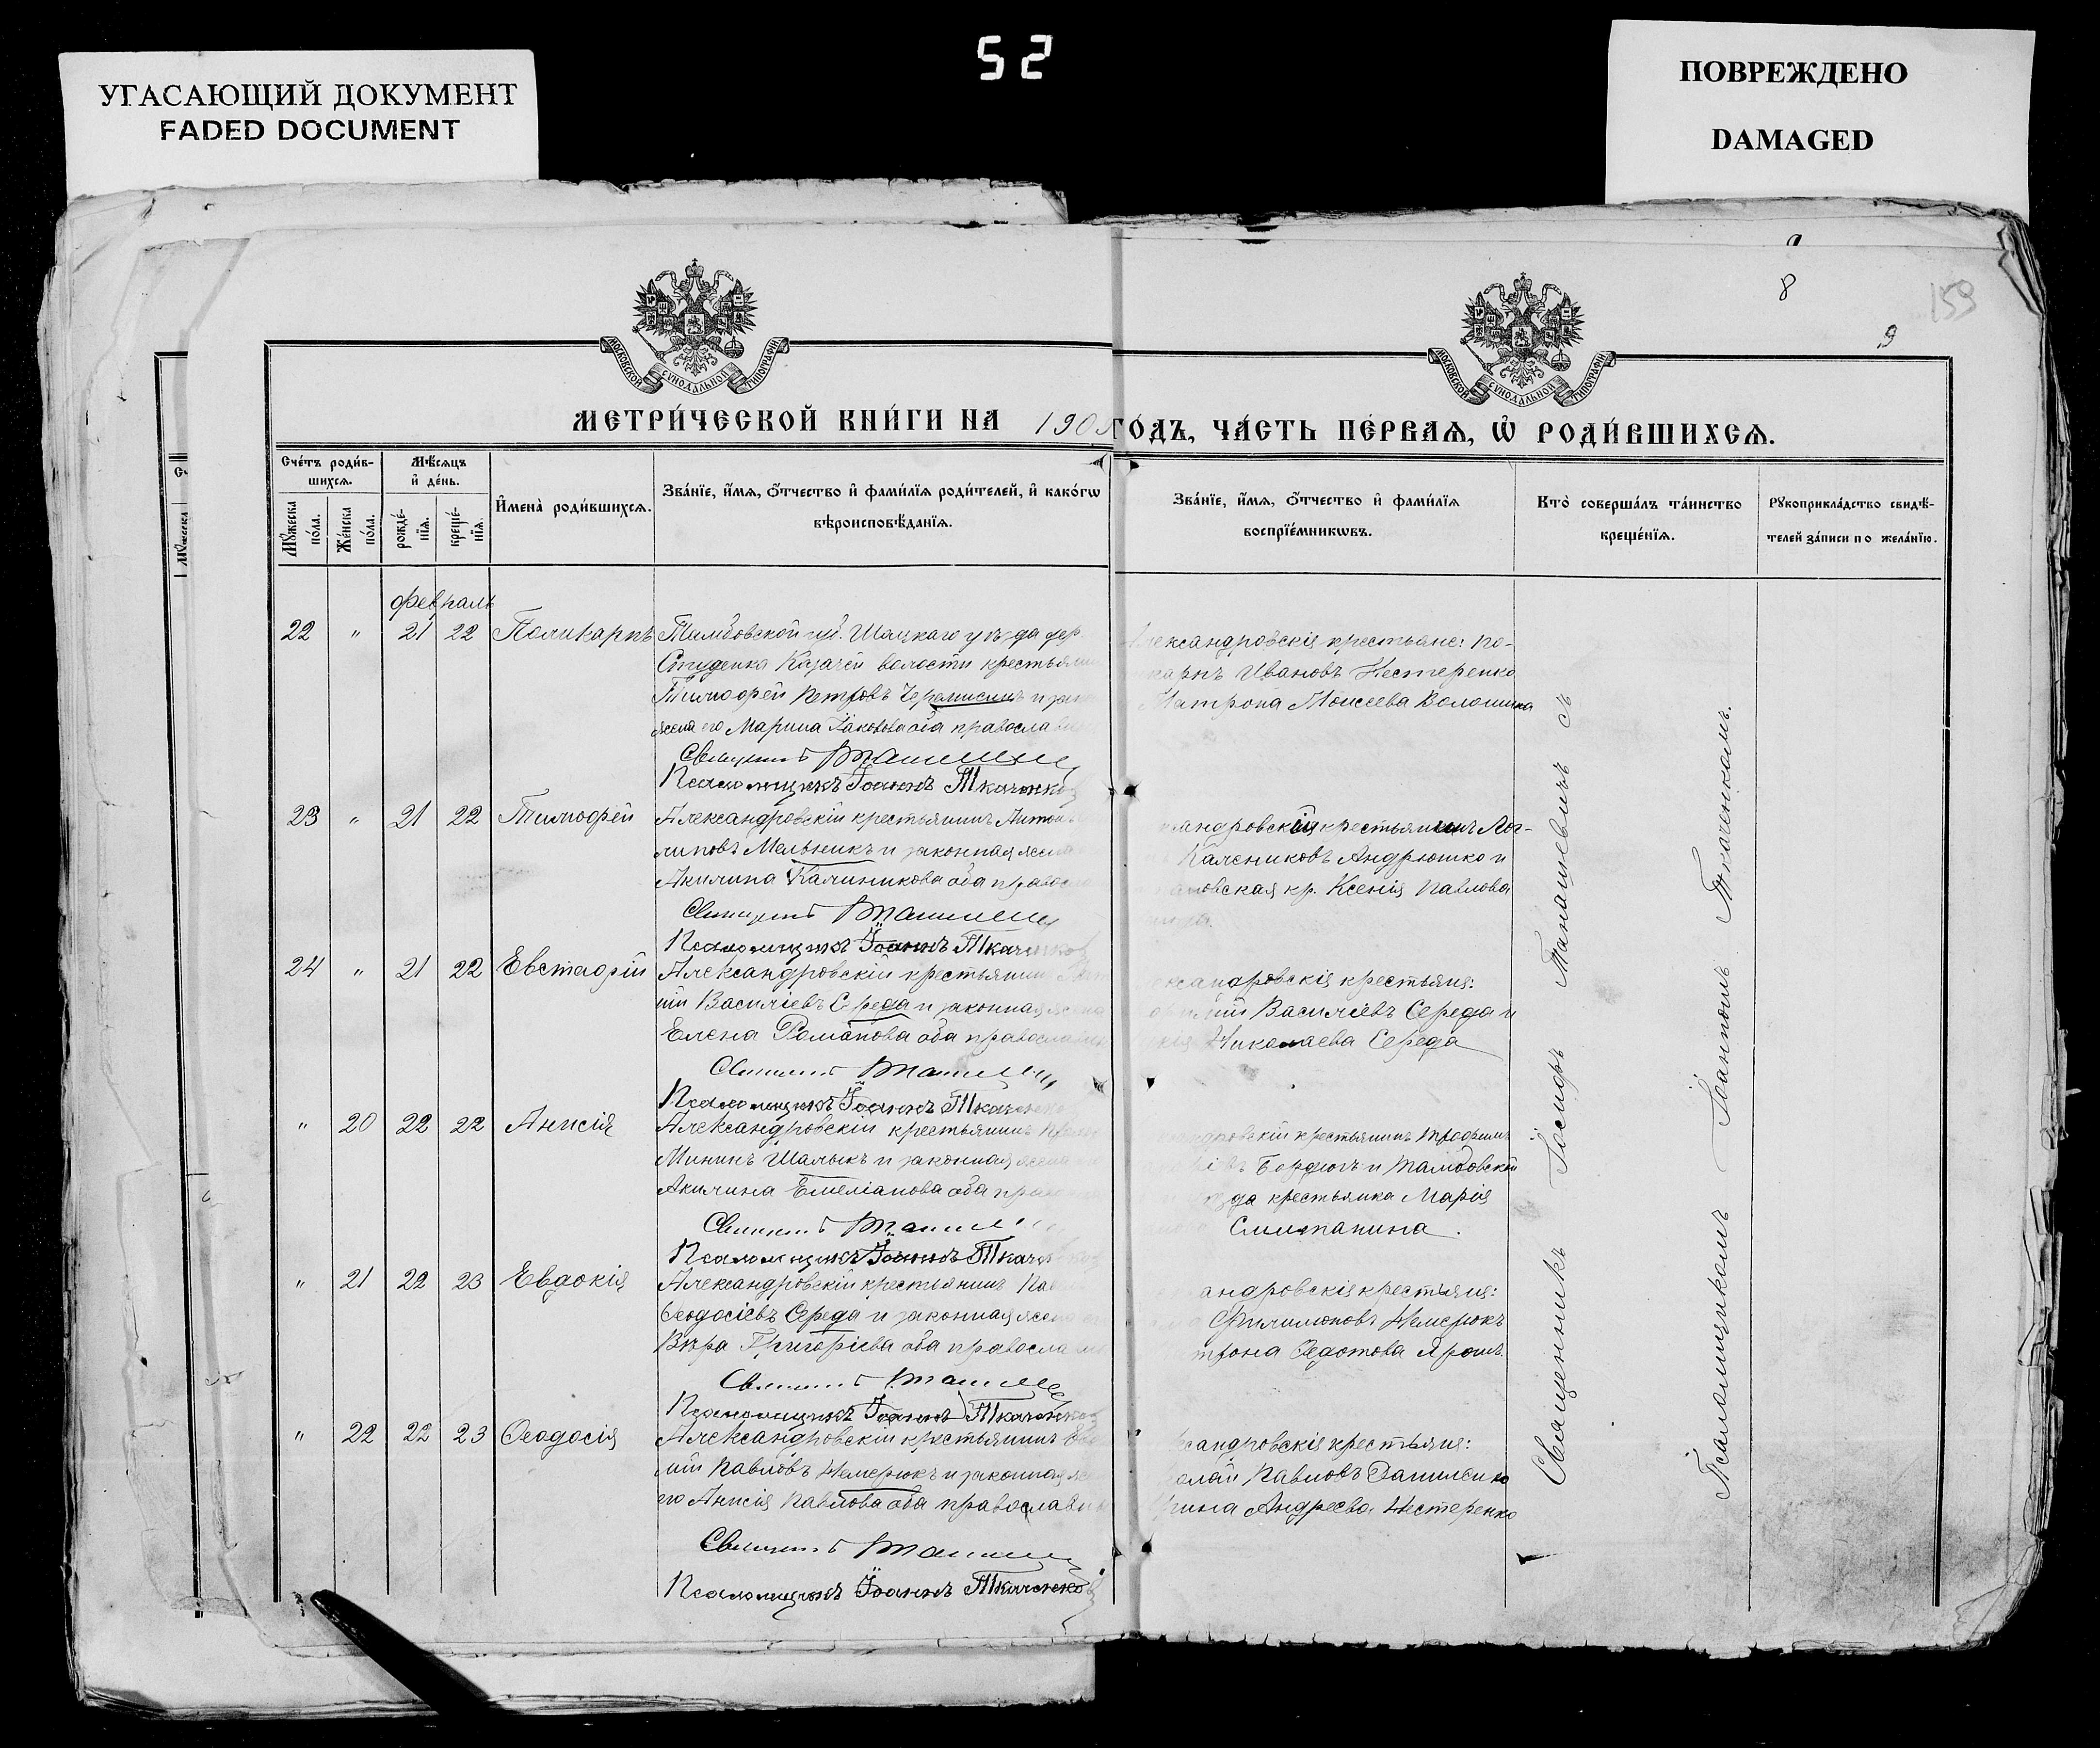 52
УГАСАЮЩИЙ ДОКУМЕНТ
FADED DOCUMENT
ПОВРЕЖДЕНО
DAMAGED
8
159
9
МОСКОВСКОЙ СѴНОДАЛЬНОЙ ТИПОГРАФІИ
МОСКОВСКОЙ СѴНОДАЛЬНОЙ ТИПОГРАФІИ
МЕТРИ́ЧЕСКОЙ КНИ́ГИ НА 190 ГОДЪ, ЧА́СТЬ ПЕ́РВАѦ, Ѡ҆ РОДИ́ВШИХСѦ.
Сче́тъ роди́в-
шихсѧ.
Мѣ́сѧцъ
и҆ де́нь.
Мꙋ́жеска по́ла.
Же́нска по́ла.
рожде́-
нїѧ.
креще́-
нїѧ.
И҆мена̀ роди́вшихсѧ.
Зва́нїе, и҆́мѧ, ѻ҆́тчество и҆ фами́лїѧ роди́телей, и҆ како́гѡ
вѣроисповѣ́данїѧ.
Зва́нїе, и҆́мѧ, ѻ҆́тчество и҆ фами́лїѧ
воспрїе́мникѡвъ.
Кто̀ соверша́лъ та́инство
креще́нїѧ.
Рꙋкоприкла́дство свидѣ́-
телей за́писи по жела́нїю.
февраль
22 " 21 22 Поликарпъ Тамбовской губ. Шацкаго уѣзда дер.
Студенка Казачей волости крестьянин
Тимофей Петровъ и зак
жена его Марина Іаковова оба православ
Священникъ
Псаломщикъ Іоаннъ Ткаченко
Александровскія крестьяне: По-
карпъ Ивановъ Нестеренко
Матрона Моисеева Волошина
23 " 21 22 Тимофей Александровскій крестьянинъ Антон
липовъ Мельникъ и законная жена
Акилина Калиникова оба правос
Священникъ
Псаломщикъ Іоаннъ Ткаченко
андровскій крестьянинъ Лог-
Калениковъ Андрюшко и
ановская кр. Ксенія Павлова
24 " 21 22 Евстафій Александровскій крестьянинъ
ній Василіевъ Середа и законная жена
Елена Романова оба православн
Священникъ
Псаломщикъ Іоаннъ Ткаченко
ксандровскія крестьяня:
Василіевъ Середа и
Николаева Середа
" 20 22 22 Анисія Александровскій крестьянинъ
Мининъ Шалыкъ и законная жена
Акилина Емеліанова оба прав
Священникъ
Псаломщикъ Іоаннъ Ткаченко
андровскій крестьянинъ Трофимъ
и Тамбовской
зда крестьянка Марія
" 21 22 23 Евдокія Александровскій крестьянинъ Пав
Ѳеодосіевъ Середа и законная жена
Вѣра Григоріева оба правосла
Священникъ
Псаломщикъ Іоаннъ Ткаченко
андровскія крестьяня:
Филимоновъ Немерюкъ
трона Ѳедотова Ярошъ
" 22 22 23 Ѳеодосія Александровскій крестьянинъ
мій Павловъ Немерюкъ и законная ж
его Анисія Павлова оба православн
Священникъ
Псаломщикъ Іоаннъ Ткаченко
сандровскія крестьяня:
олай Павловъ Даниленко
рина Андреева Нестеренко
Священникъ Іосифъ Танашевичъ съ
Псаломщикомъ Іоанномъ Ткаченкомъ.